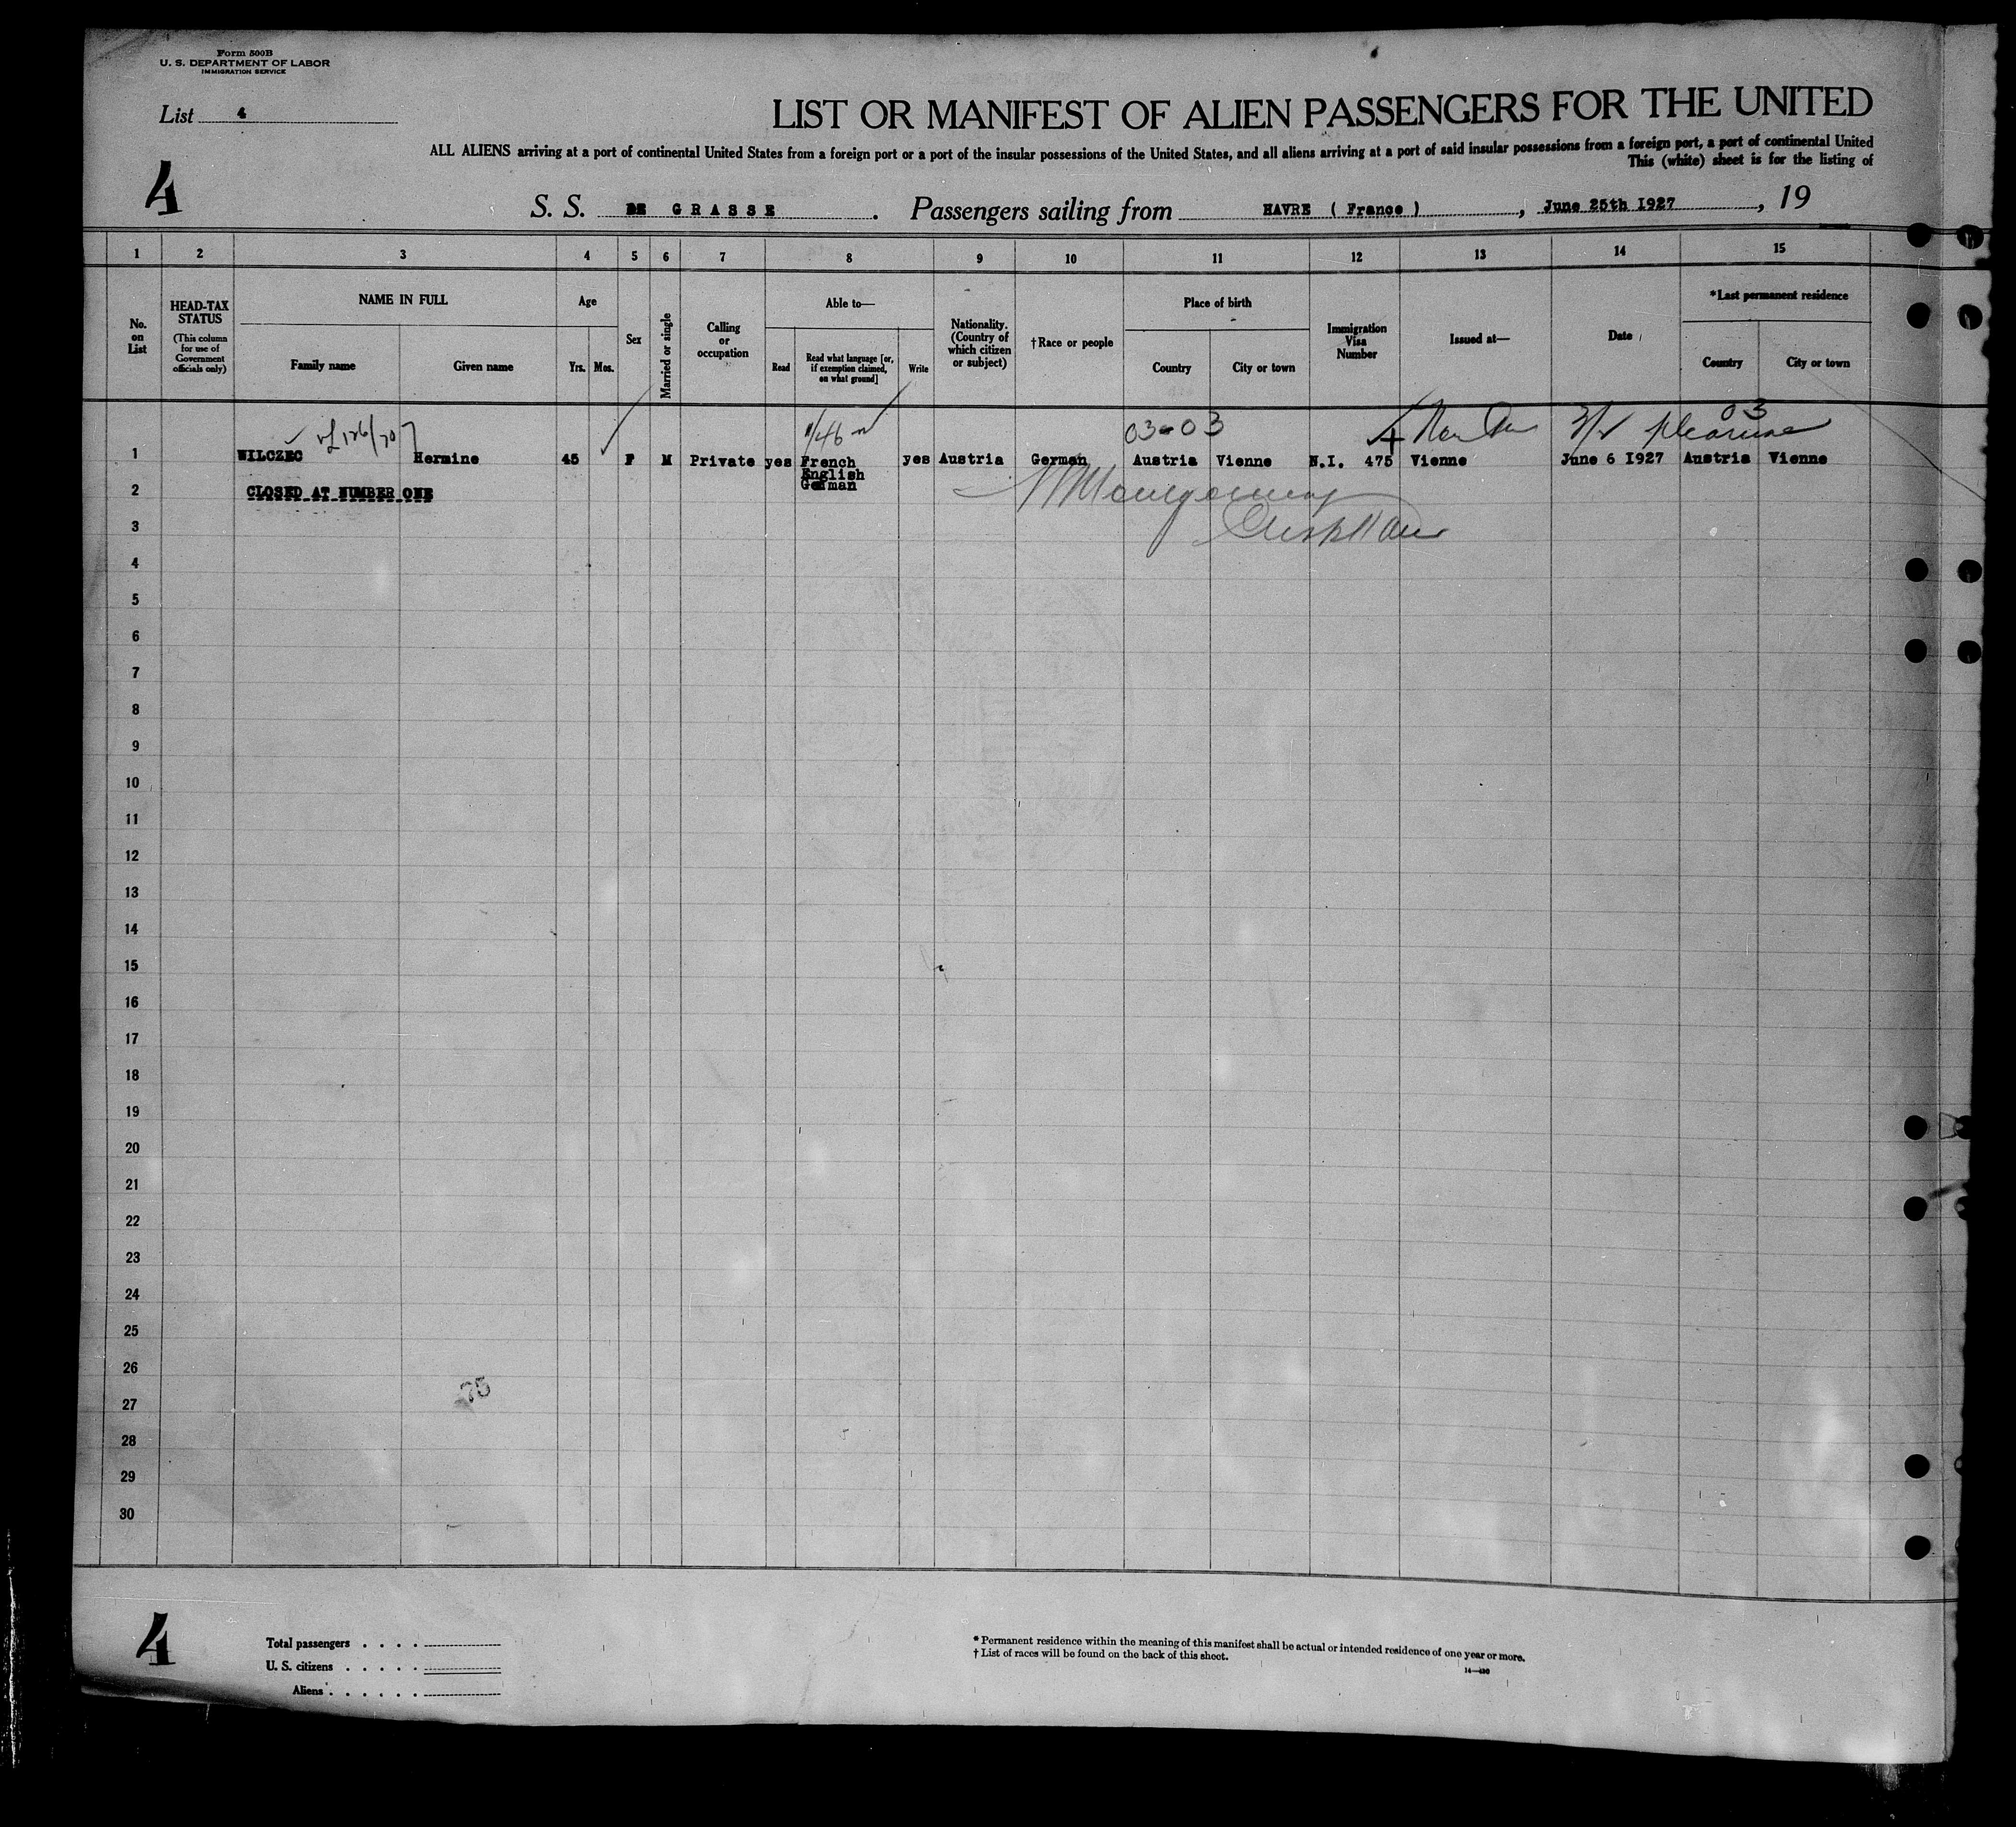 Form 500B
U. S. DEPARTMENT OF LABOR
IMMIGRATION SERVICE
List 4
4
LIST OR MANIFEST OF ALIEN PASSENGERS FOR THE UNITED
ALL ALIENS arriving at a port of continental United States from a foreign port or a port of the insular possessions of the United States, and all aliens arriving at a port of said insular possessions from a foreign port, a port of continental United
This (white) sheet is for the listing of
S. S. DE GRASSE . Passengers sailing from HAVRE ( France ) , June 25th 1927 , 19
1 2 3 4 5 6 7 8 9 10 11 12 13 14 15
No. on List
HEAD-TAX STATUS
(This column for use of Government officials only)
NAME IN FULL
Family name Given name
Age
Yrs. Mos.
Sex
Married or single
Calling or occupation
Able to—
Read
Read what language [or, if exemption claimed, on what ground]
Write
Nationality. (Country of which citizen or subject)
†Race or people
Place of birth
Country City or town
Immigration Visa Number
Issued at—
Date
*Last permanent residence
Country City or town
03-03 03
1 WILCZEC Hermine 45 F M Private yes French yes Austria German Austria Vienne N.I. 475 Vienne June 6 1927 Austria Vienne
English
German
2 CLOSED AT NUMBER ONE
Montgomery
3
4
5
6
7
8
9
10
11
12
13
14
15
16
17
18
19
20
21
22
23
24
25
26
75
27
28
29
30
4
Total passengers . . . .
U. S. citizens . . . . .
Aliens . . . . . .
* Permanent residence within the meaning of this manifest shall be actual or intended residence of one year or more.
† List of races will be found on the back of this sheet.